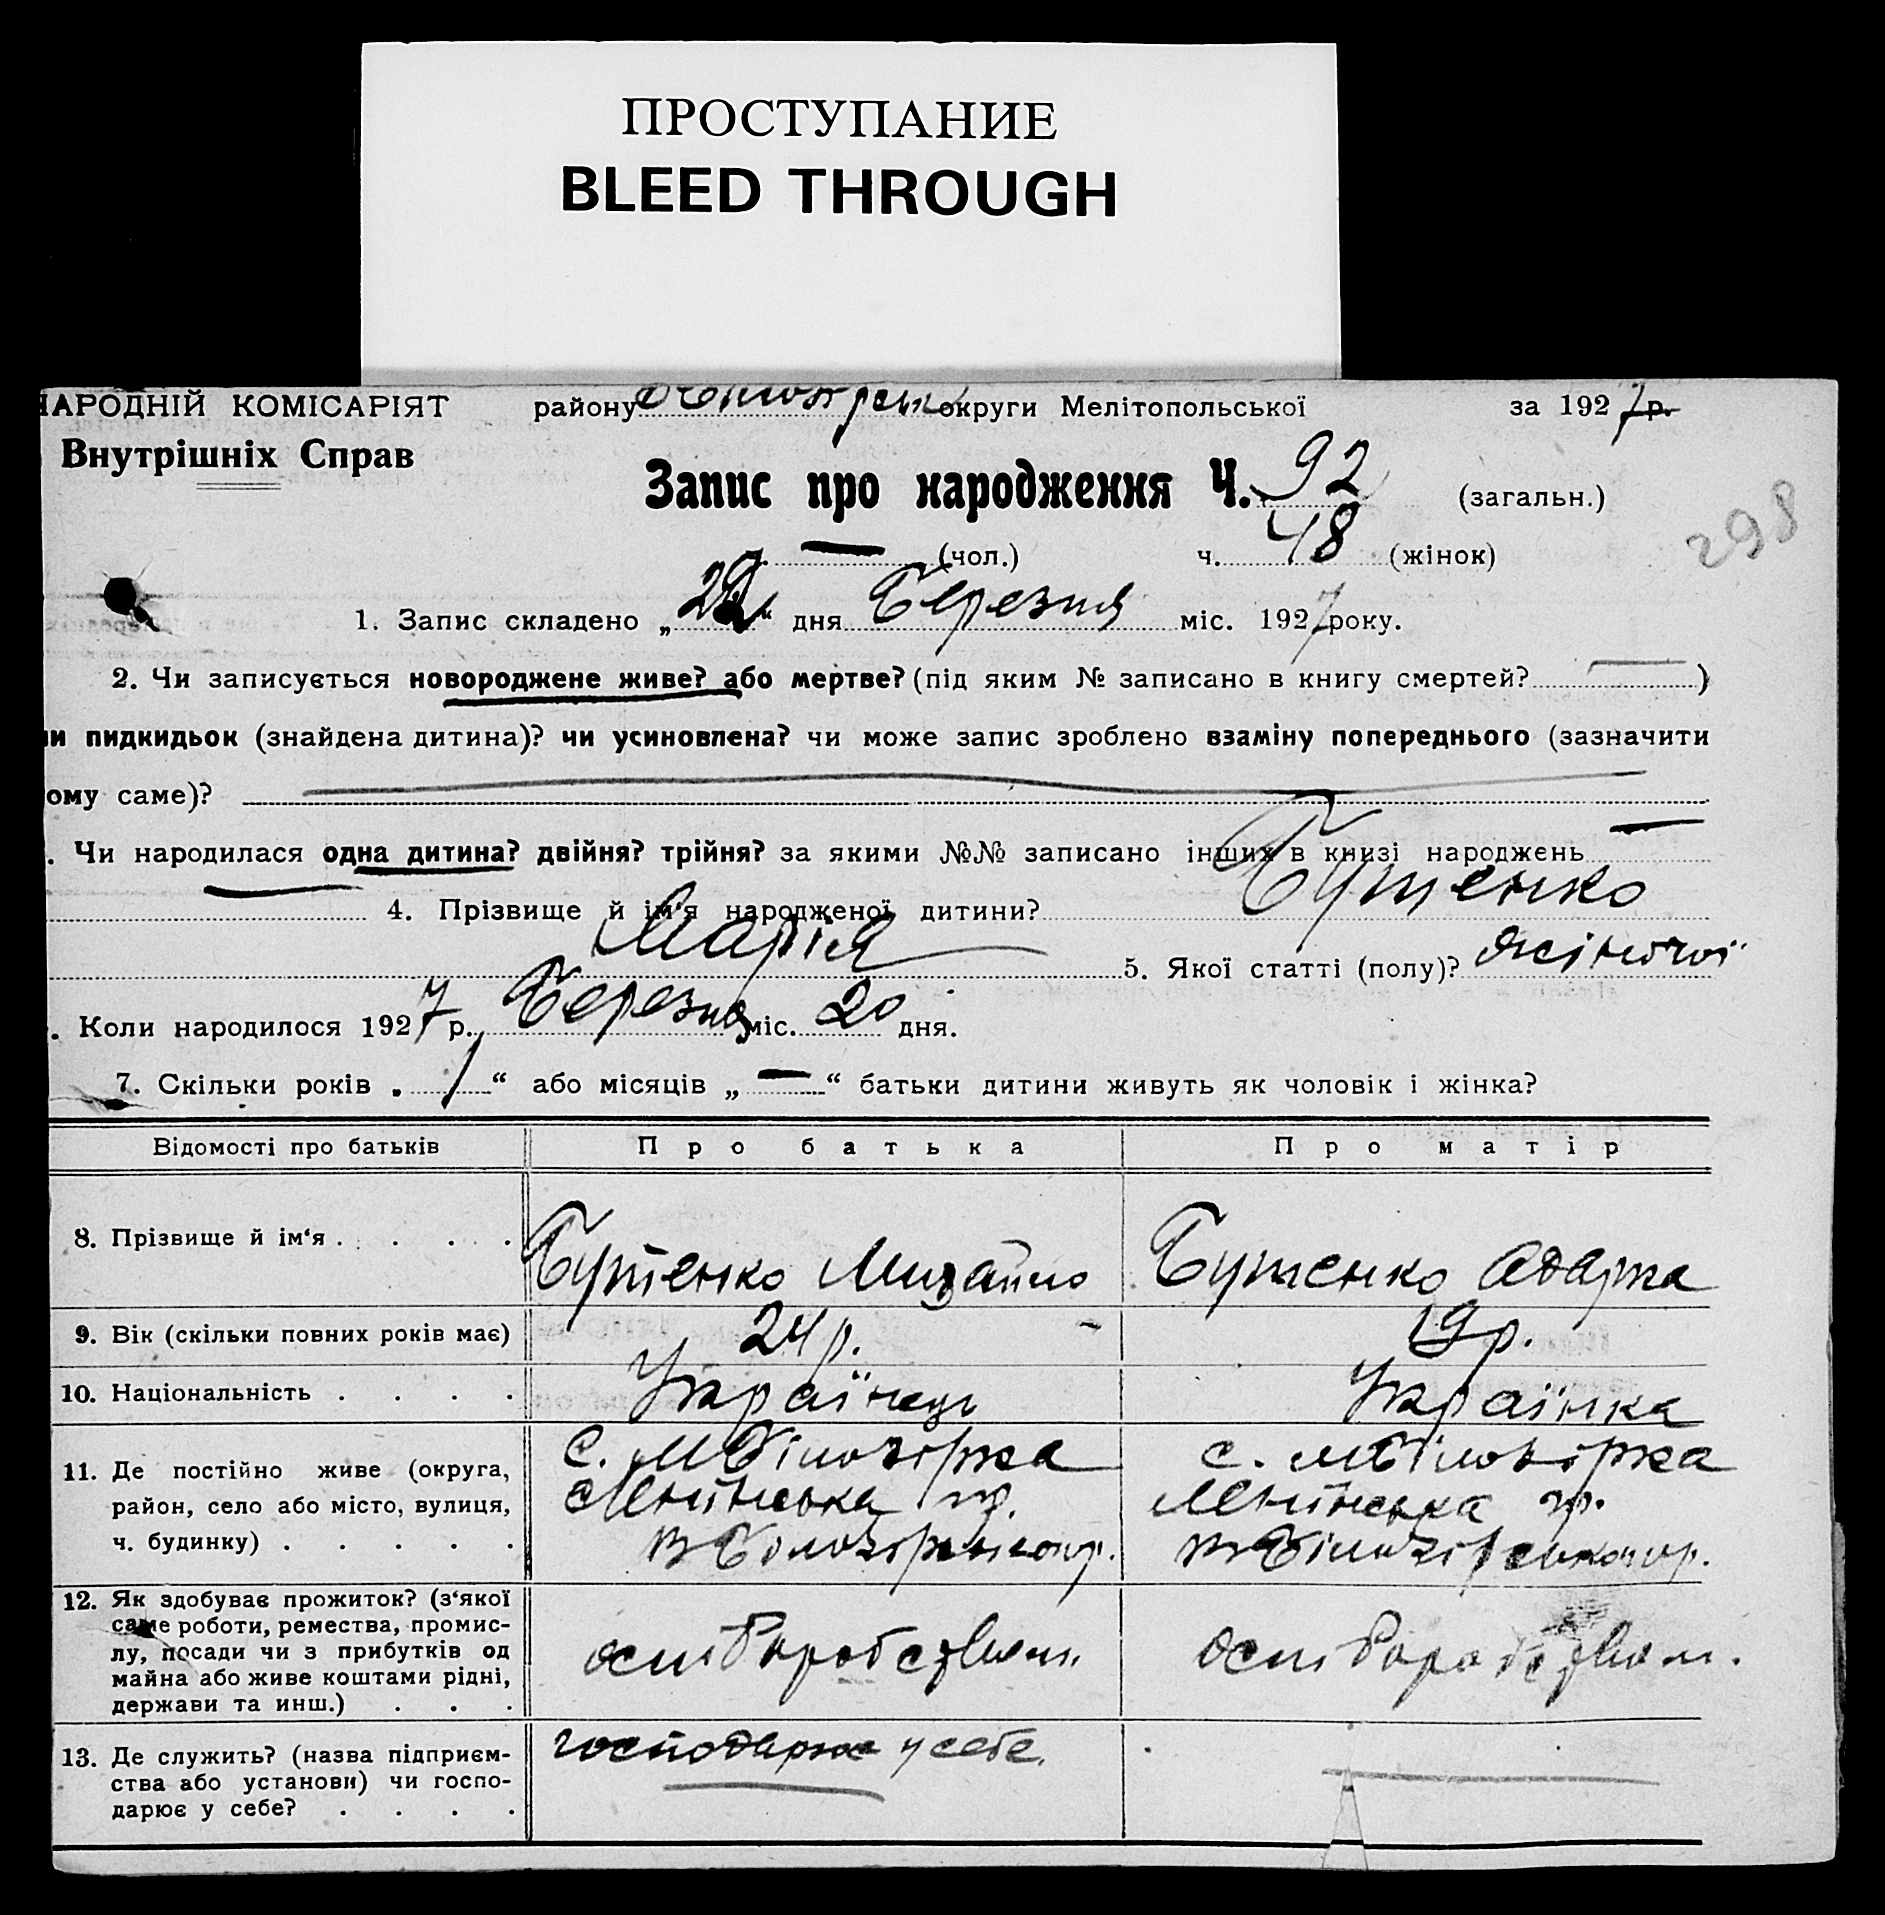 ПРОСТУПАНИЕ
BLEED THROUGH
НАРОДНІЙ КОМІСАРІЯТ району округи Мелітопольської за 1927 р.
Внутрішніх Справ
Запис про народження Ч. 92 (загальн.)
298
— (чол.) ч. 48 (жінок)
1. Запис складено „ “ дня Березня міс. 1927 року.
2. Чи записується новороджене живе? або мертве? (під яким № записано в книгу смертей? — )
чи пидкидьок (знайдена дитина)? чи усиновлена? чи може запис зроблено взаміну попереднього (зазначити
ому саме)?
. Чи народилася одна дитина? двійня? трійня? за якими №№ записано інших в книзі народжень —
4. Прізвище й ім'я народженої дитини? Бутенко
Марія 5. Якої статті (полу)? жіночої
. Коли народилося 1927 р. Березня міс. 20 дня.
7. Скільки років „ 1 “ або місяців „ — “ батьки дитини живуть як чоловік і жінка?
Відомості про батьків Про батька Про матір
8. Прізвище й ім'я . . . . Бутенко Михайло Бутенко Одарка
9. Вік (скільки повних років має) 24 р. 19 р.
10. Національність . . . . Українець Українка
11. Де постійно живе (округа, район, село або місто, вулиця, ч. будинку) . . . . .
с. М Білозірка
с. М Білозірка
12. Як здобуває прожиток? (з'якої саме роботи, ремества, промислу, посади чи з прибутків од майна або живе коштами рідні, держави та инш.) . . .
13. Де служить? (назва підприємства або установи) чи господарює у себе? . . . . господарює у себе.